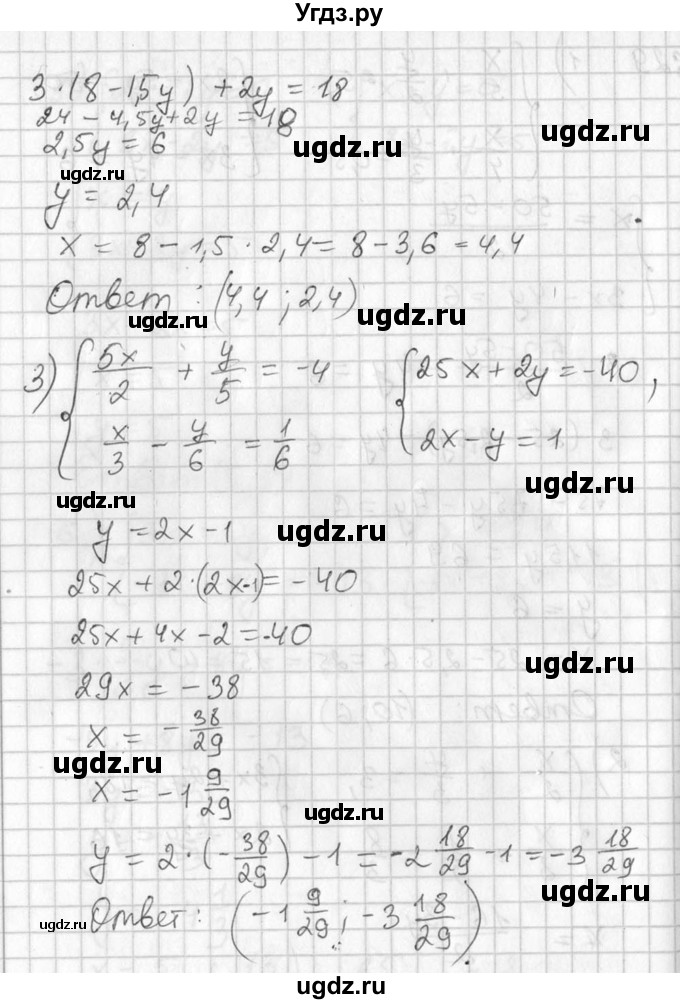 Угдз.ру
3·(8-1,5y) + 2y = 18
24 - 4,5y + 2y = 18
ugdz.ru
ugdz.ru
2,5y = 6
ugdz.ru
y = 2,4
x = 8 - 1,5 · 2,4 = 8 - 3,6 = 4,4
Ответ : (4,4 ; 2,4)
ugdz.ru
ugdz.ru
3) { 5x/2 + y/5 = -4 { 25x + 2y = -40 ,
x/3 - y/6 = 1/6 2x - y = 1
ugdz.ru
ugdz.ru
y = 2x - 1
ugdz.ru
25x + 2·(2x-1) = -40
25x + 4x - 2 = -40
ugdz.ru
29x = -38
x = - 38/29
ugdz.ru
x = -1 9/29
ugdz.ru
y = 2·(- 38/29) - 1 = -2 18/29 - 1 = -3 18/29
ugdz.ru
Ответ: (-1 9/29 ; -3 18/29).
ugdz.ru